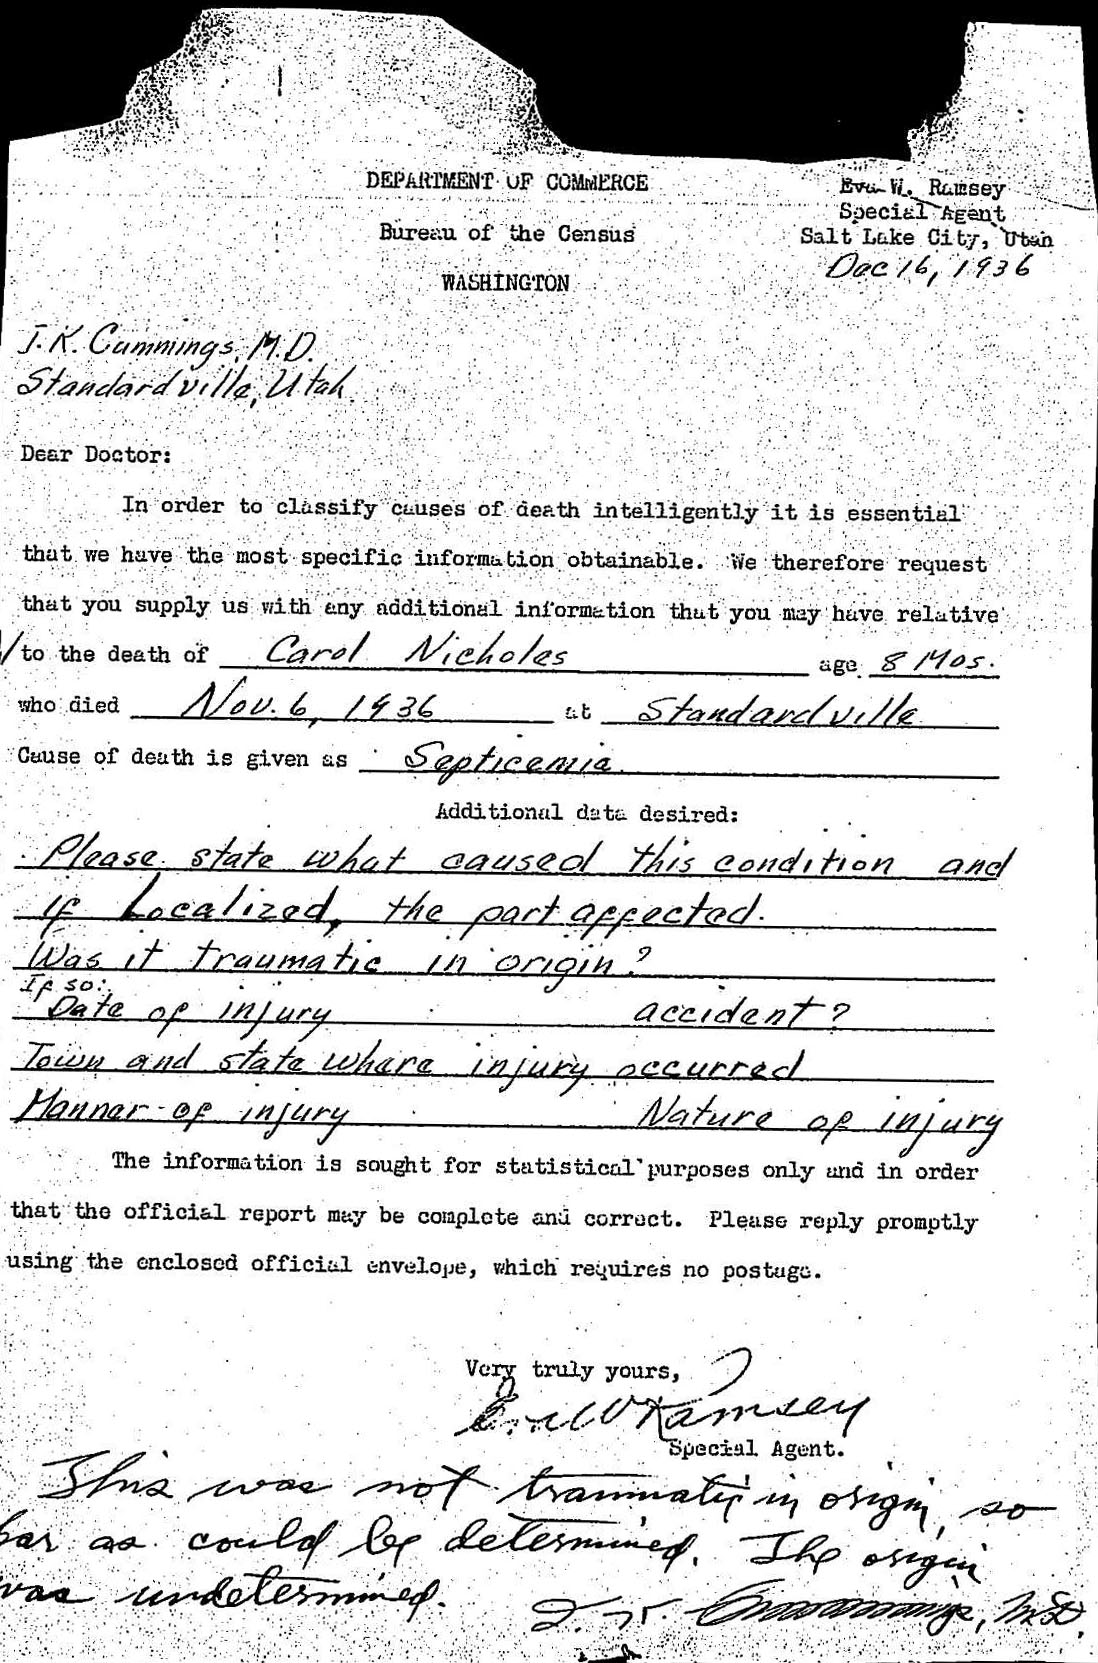 DEPARTMENT OF COMMERCE
Bureau of the Census
WASHINGTON
Eva W. Ramsey
Special Agent
Salt Lake City, Utah
Dec 16, 1936
J. K. Cummings, M.D.
Standardville, Utah.
Dear Doctor:
In order to classify causes of death intelligently it is essential
that we have the most specific information obtainable. We therefore request
that you supply us with any additional information that you may have relative
to the death of Carol Nicholes age 8 Mos.
who died Nov. 6, 1936 at Standardville
Cause of death is given as Septicemia
Additional data desired:
Please state what caused this condition and
if Localized, the part affected.
Was it traumatic in origin?
If so:
Date of injury accident?
Town and state where injury occurred
Manner of injury Nature of injury
The information is sought for statistical purposes only and in order
that the official report may be complete and correct. Please reply promptly
using the enclosed official envelope, which requires no postage.
Very truly yours,
Eva W Ramsey
Special Agent.
This was not traumatic in origin, so
far as could be determined. The origin
was undetermined.
J. K. Cummings, M.D.